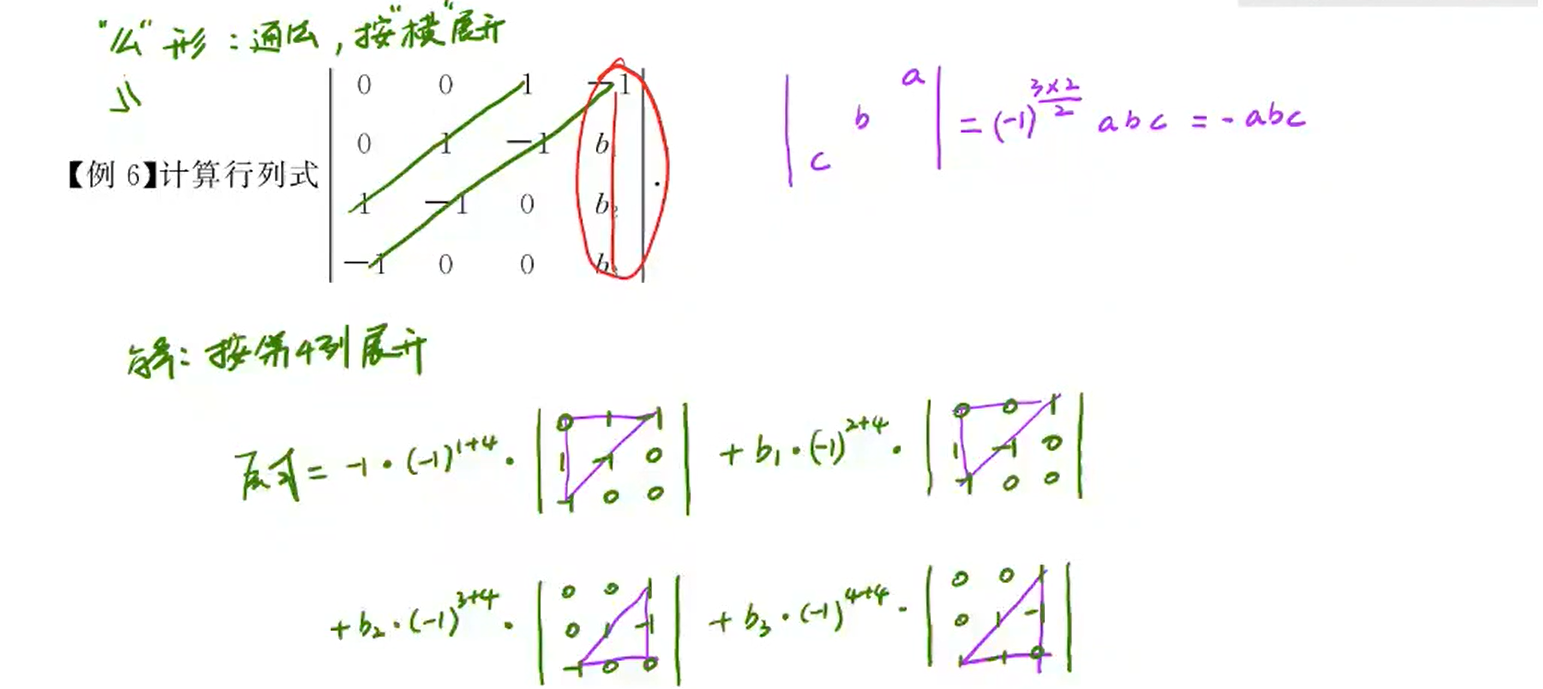 "么"形：通法，按"横"展开
【例 6】计算行列式
0 0 1 -1
0 1 -1 b
1 -1 0 b₂
-1 0 0 b
.
a
b
c
= (-1)^(3×2/2) abc = -abc
解：按第4列展开
原式 = -1·(-1)^(1+4)·
0 1 -1
1 -1 0
-1 0 0
+ b₁·(-1)^(2+4)·
0 0 1
1 -1 0
-1 0 0
+ b₂·(-1)^(3+4)·
0 0 1
0 1 -1
-1 0 0
+ b₃·(-1)^(4+4)·
0 0 1
0 1 -1
1 -1 0